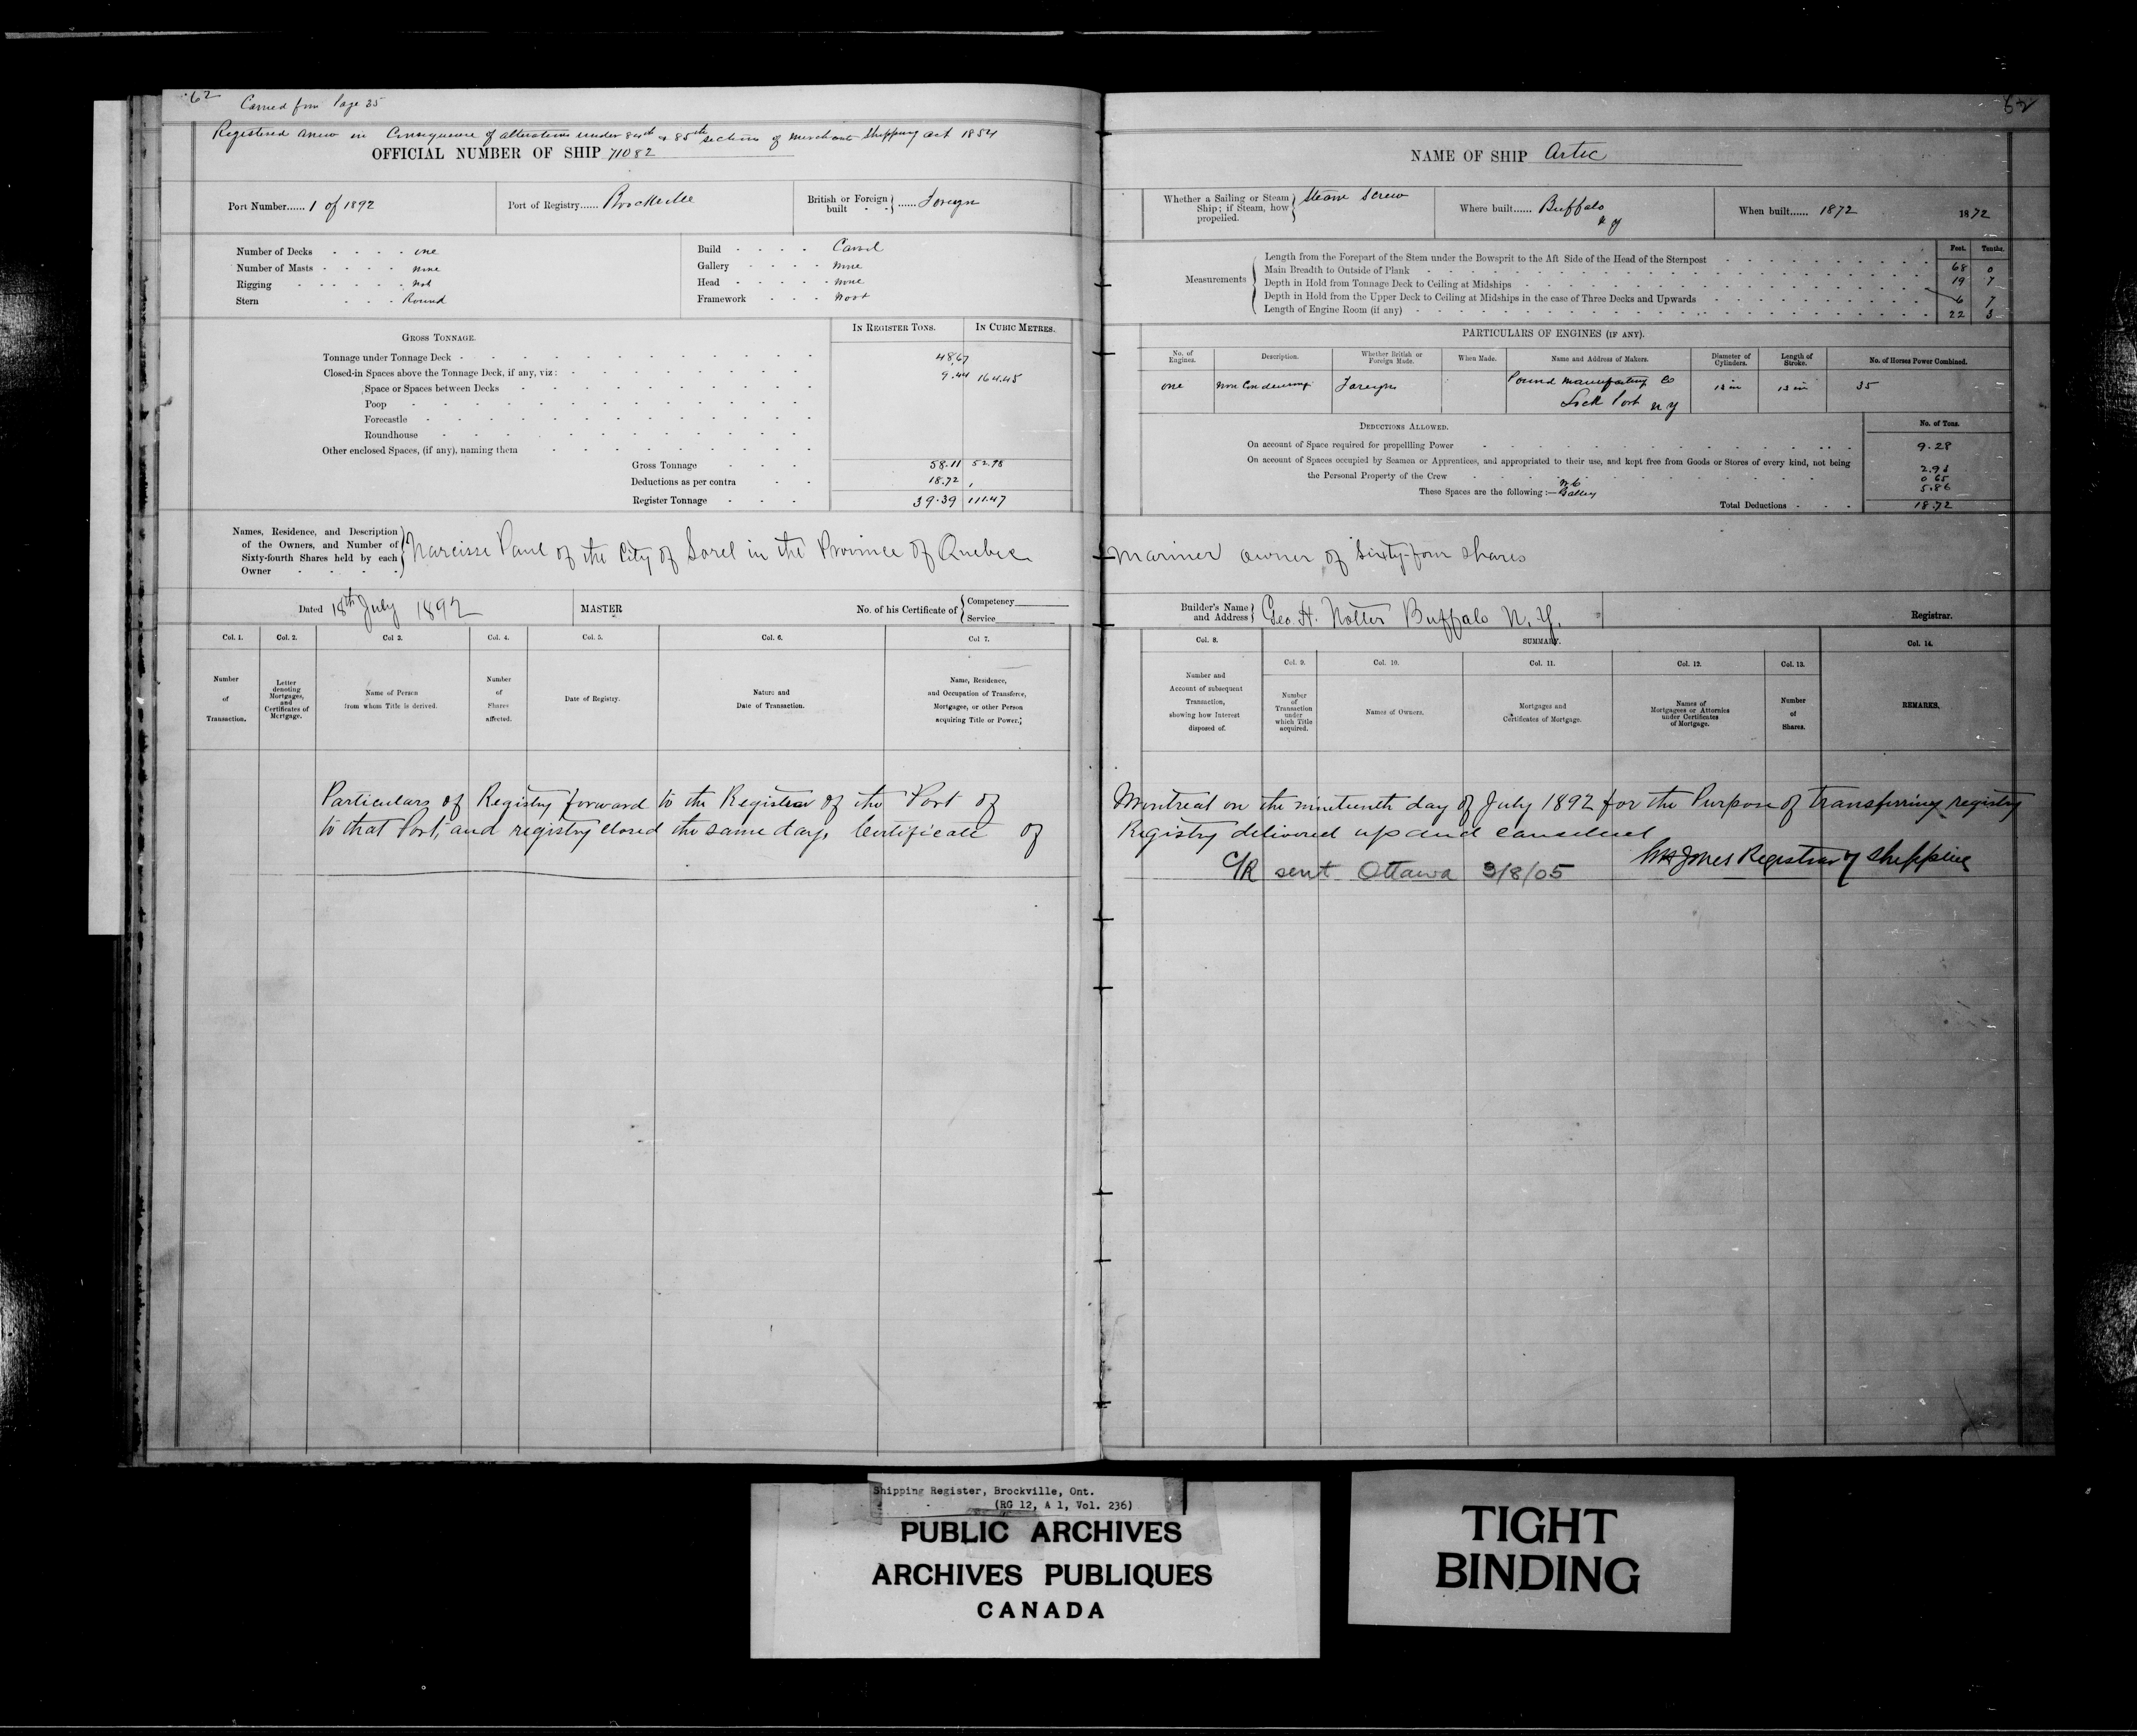 62
Carried from Page 35
Registered anew in Consequence of alterations under 84th & 85th sections of Merchant Shipping act 1854
OFFICIAL NUMBER OF SHIP 71082
Port Number...... 1 of 1892
Port of Registry...... Brockville
British or Foreign built ...... Foreign
Number of Decks - - - - one
Number of Masts - - - - none
Rigging - - - - - not
Stern - - - Round
Build - - - - Carvel
Gallery - - - - none
Head - - - - none
Framework - - - Wood
GROSS TONNAGE.
IN REGISTER TONS. IN CUBIC METRES.
Tonnage under Tonnage Deck - 48.67
Closed-in Spaces above the Tonnage Deck, if any, viz: - 9.44 164.45
Space or Spaces between Decks
Poop
Forecastle
Roundhouse
Other enclosed Spaces, (if any), naming them
Gross Tonnage - - - 58.11 52.98
Deductions as per contra - - 18.72
Register Tonnage - - - 39.39 111.47
Names, Residence, and Description of the Owners, and Number of Sixty-fourth Shares held by each Owner
Narcisse Paul of the City of Sorel in the Province of Quebec
Dated 18th July 1892
MASTER
No. of his Certificate of { Competency
Service
Col. 1. Col. 2. Col 3. Col. 4. Col. 5. Col. 6. Col 7.
Number of Transaction.
Letter denoting Mortgages, and Certificates of Mortgage.
Name of Person from whom Title is derived.
Number of Shares affected.
Date of Registry.
Nature and Date of Transaction.
Name, Residence, and Occupation of Transferee, Mortgagee, or other Person acquiring Title or Power.
Particulars of Registry forward to the Registrar of the Port of
to that Port, and registry closed the same day, Certificate of
62
NAME OF SHIP Artic
Whether a Sailing or Steam Ship; if Steam, how propelled. Steam Screw
Where built...... Buffalo
N Y
When built...... 1872
1872
Feet. Tenths.
Measurements
Length from the Forepart of the Stem under the Bowsprit to the Aft Side of the Head of the Sternpost - 68 0
Main Breadth to Outside of Plank - 19 7
Depth in Hold from Tonnage Deck to Ceiling at Midships - 6 7
Depth in Hold from the Upper Deck to Ceiling at Midships in the case of Three Decks and Upwards
Length of Engine Room (if any) - 22 3
PARTICULARS OF ENGINES (IF ANY).
No. of Engines. Description. Whether British or Foreign Made. When Made. Name and Address of Makers. Diameter of Cylinders. Length of Stroke. No. of Horses Power Combined.
one Non Condensing Foreign Pound Manufacturing Co 35
Lock Port N Y
DEDUCTIONS ALLOWED.
No. of Tons.
On account of Space required for propellling Power - 9.28
On account of Spaces occupied by Seamen or Apprentices, and appropriated to their use, and kept free from Goods or Stores of every kind, not being
the Personal Property of the Crew - 2.93
0.65
These Spaces are the following:— 5.86
Total Deductions - - - 18.72
mariner owner of Sixty-four shares
Builder's Name and Address Geo. H. Notter Buffalo N. Y.
Registrar.
Col. 8. SUMMARY. Col. 14.
Col. 9. Col. 10. Col. 11. Col. 12. Col. 13.
Number and Account of subsequent Transaction, showing how Interest disposed of.
Number of Transaction under which Title acquired.
Names of Owners.
Mortgages and Certificates of Mortgage.
Names of Mortgagees or Attornies under Certificates of Mortgage.
Number of Shares.
REMARKS.
Montreal on the nineteenth day of July 1892 for the Purpose of transferring registry
Registry delivered up and cancelled
Jones Registrar of Shipping
C/R sent Ottawa 3/8/05
Shipping Register, Brockville, Ont.
(RG 12, A 1, Vol. 236)
PUBLIC ARCHIVES
ARCHIVES PUBLIQUES
CANADA
TIGHT
BINDING